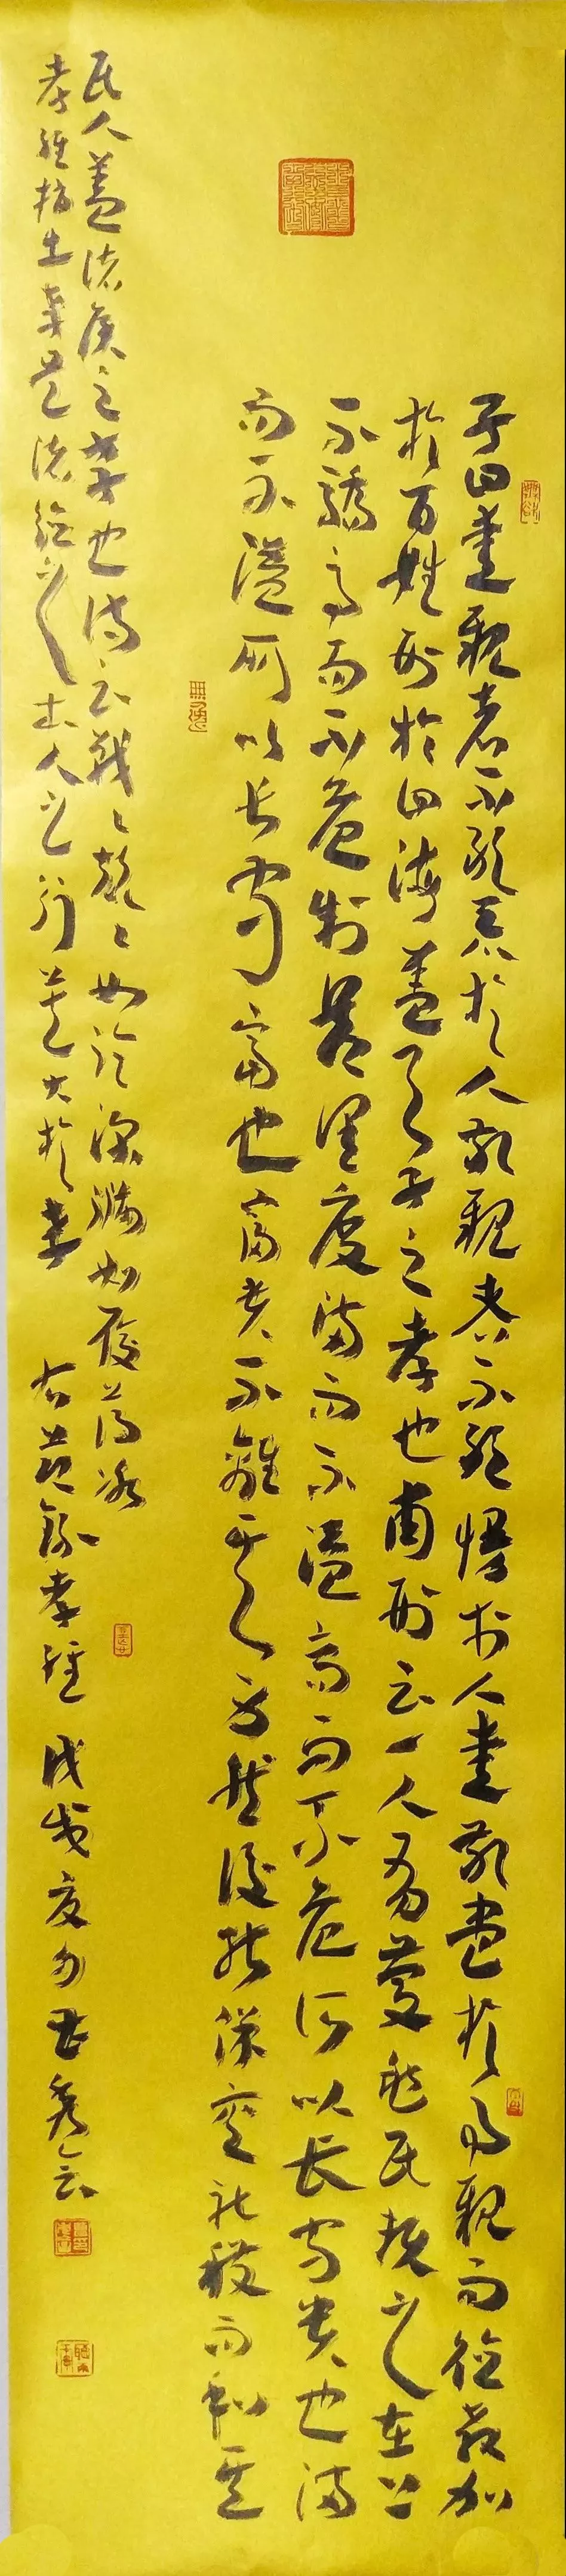 子曰爱親者不敢惡於人敬親者不敢慢於人爱敬盡於事親而德教加
於百姓刑於四海蓋天子之孝也甫刑云一人有慶兆民賴之在上
不驕高而不危制節谨度滿而不溢高而不危所以長守貴也滿
而不溢所以長守富也富貴不離其身然後能保其社稷而和其
民人蓋诸侯之孝也诗云戰々兢々如临深淵如履薄冰
孝 人之行莫大於孝 右节錄孝經 戊戌